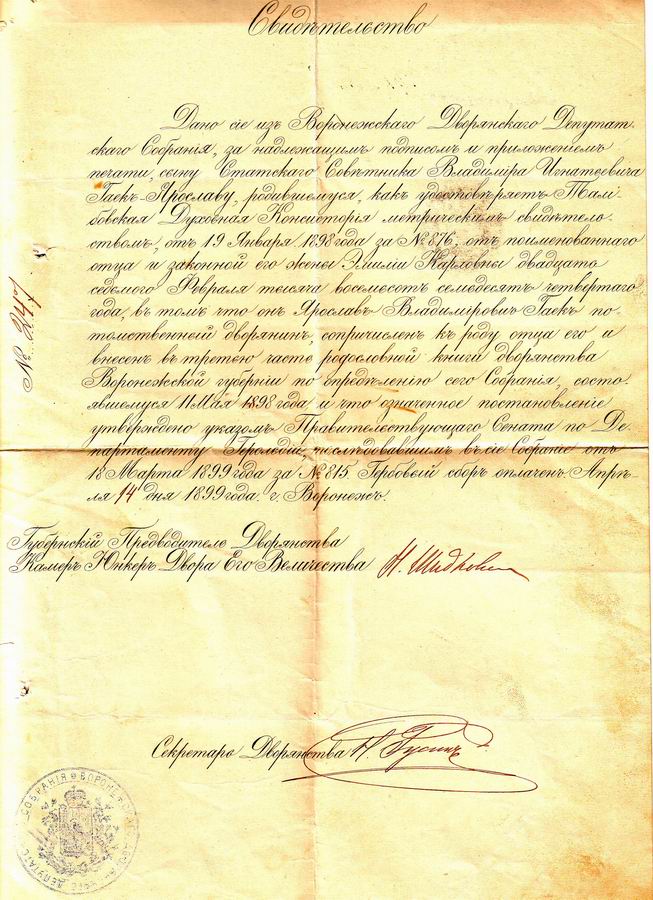 Свидѣтельство
Дано сіе изъ Воронежскаго Дворянскаго Депутат-
скаго Собранія, за надлежащимъ подписомъ и приложеніемъ
печати, сыну Статскаго Совѣтника Владиміра Игнатьевича
Гаекъ Ярославу, родившемуся, какъ удостовѣряетъ Там-
бовская Духовная Консисторія метрическимъ свидѣтель-
ствомъ, отъ 19 Января 1898 года за № 876, отъ поименованнаго
отца и законной его жены Эмиліи Карловны двадцать
седьмого Февраля тысяча восемьсотъ семьдесятъ четвертаго
года, въ томъ что онъ Ярославъ Владиміровичъ Гаекъ по-
томственный дворянинъ, сопричисленъ къ роду отца его и
внесенъ въ третью часть родословной книги дворянства
Воронежской губерніи по опредѣленію сего Собранія, состо-
явшемуся 11 Мая 1898 года и что означенное постановленіе
утверждено указомъ Правительствующаго Сената по Де-
партаменту Герольдіи, послѣдовавшимъ въ сіе Собраніе отъ
18 Марта 1899 года за № 815. Гербовый сборъ оплаченъ. Апрѣ-
ля 14 дня 1899 года. г. Воронежъ.
№ 247
Губернскій Предводитель Дворянства
Камеръ Юнкеръ Двора Его Величества
Секретарь Дворянства Н.
СОБРАНІЯ ВОРОНЕЖСКАГО ДЕПУТАТС